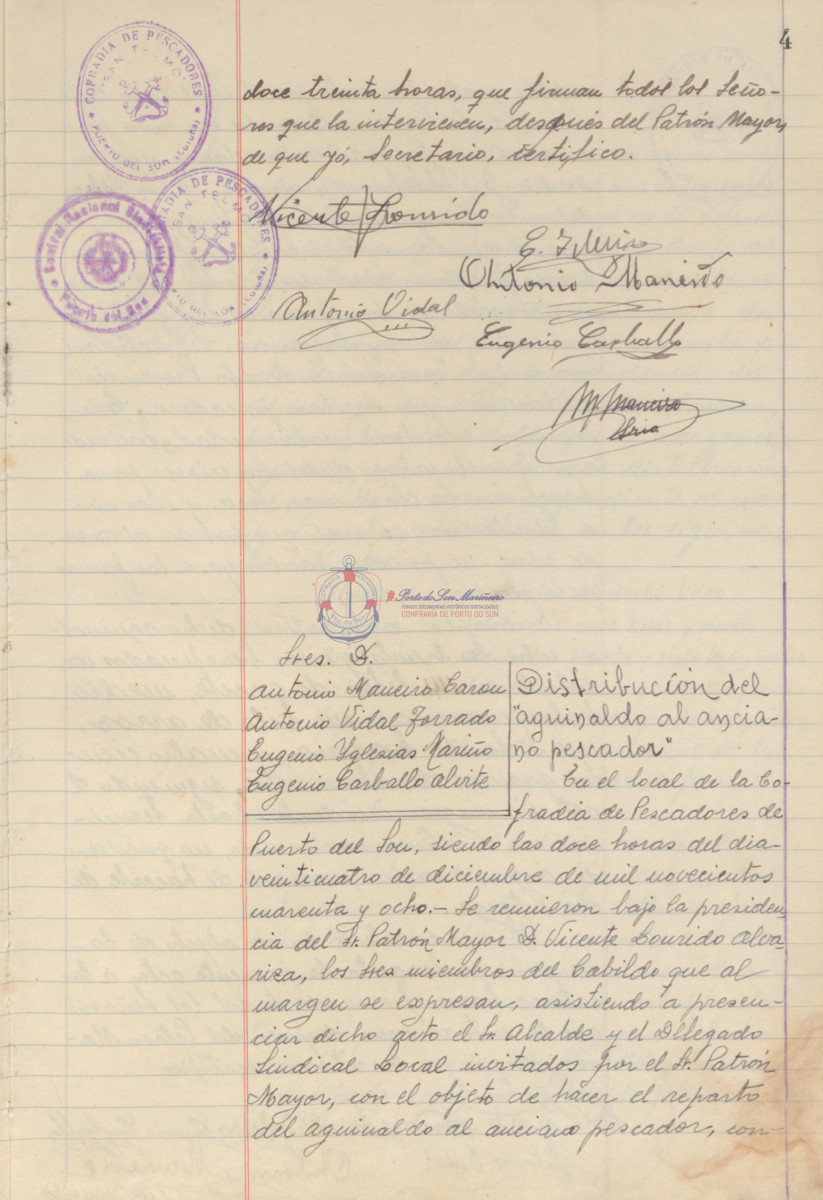 4
COFRADIA DE PESCADORES
"SAN TELMO"
PUERTO DEL SON (Coruña)
doce treinta horas, que firman todos los Seño-
res que la intervienen, después del Patrón Mayor,
de que yó, Secretario, certifico.
COFRADIA DE PESCADORES
SAN TELMO
PUERTO DEL SON (Coruña)
Central Nacional Sindicalista
Puerto del Son
Vicente Lourido
Antonio Maneiro
Antonio Vidal
Eugenio Carballo
M. Maneiro
Porto do Son Mariñeiro
FONDOS DOCUMENTAIS HISTÓRICOS DIXITALIZADOS
CONFRARÍA DE PORTO DO SON
Sres. D.
Antonio Maneiro Carou
Antonio Vidal Torrado
Eugenio Yglesias Mariño
Eugenio Carballo Alvite
Distribución del
"aguinaldo al ancia-
no pescador"
En el local de la Co-
fradía de Pescadores de
Puerto del Son, siendo las doce horas del dia
veinticuatro de diciembre de mil novecientos
cuarenta y ocho.- Se reunieron bajo la presiden-
cia del Sr. Patrón Mayor D. Vicente Lourido Alva-
riza, los Sres miembros del Cabildo que al
margen se expresan, asistiendo a presen-
ciar dicho acto el Sr. Alcalde y el Delegado
Sindical Local invitados por el Sr. Patrón
Mayor, con el objeto de hacer el reparto
del aguinaldo al anciano pescador, con-